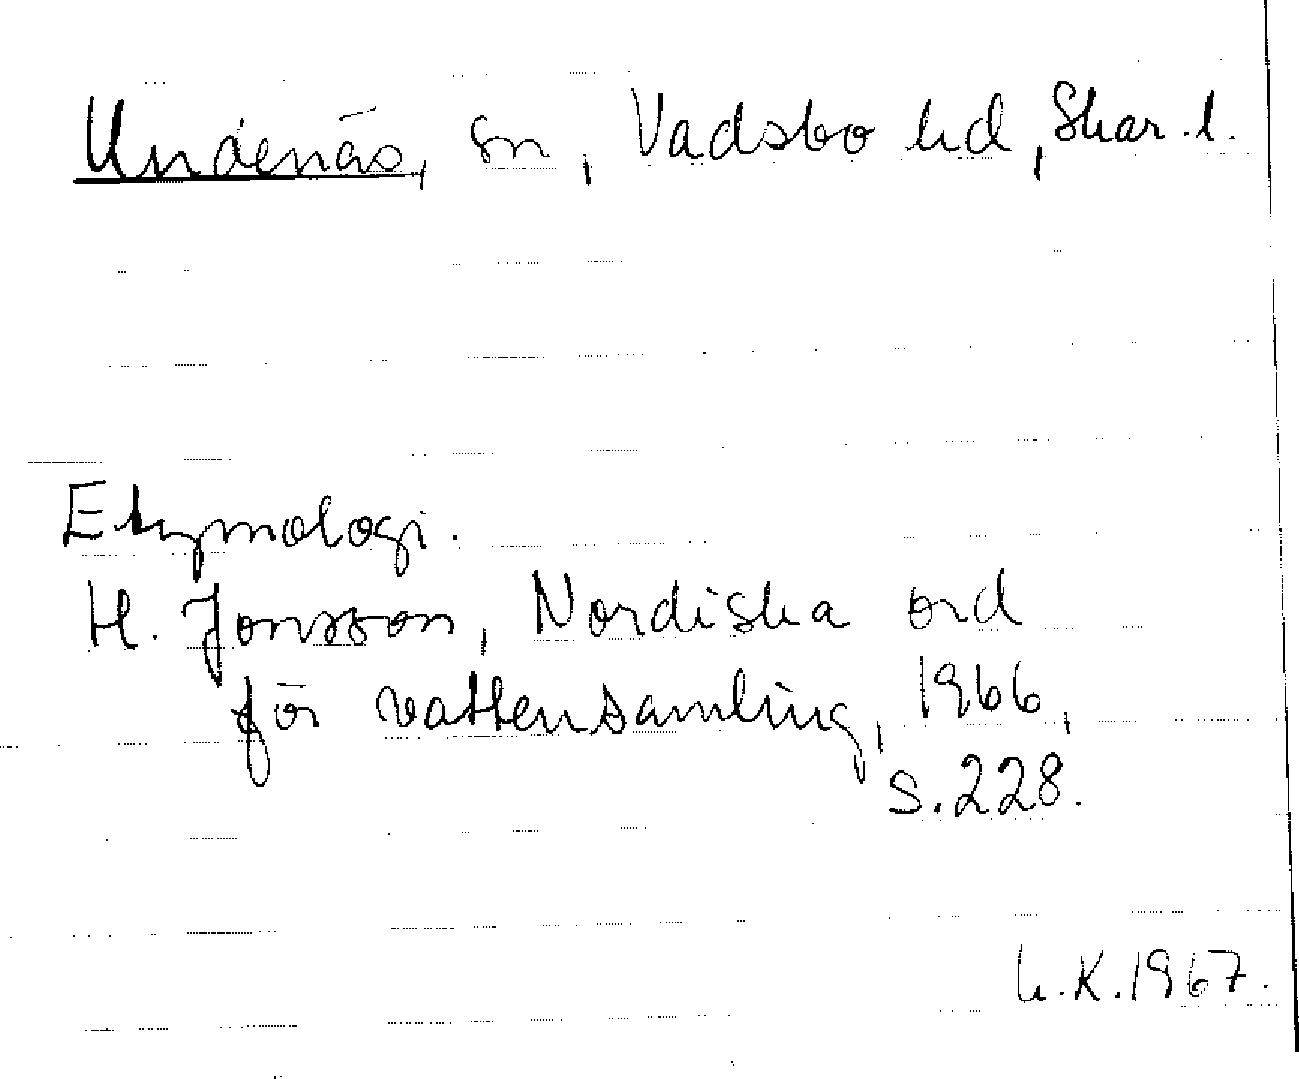 Undenäs, sn, Vadsbo hd, Skar. l.
Etymologi.
H. Jonsson, Nordiska ord
för vattensamling, 1966,
s. 228.
K. 1967.